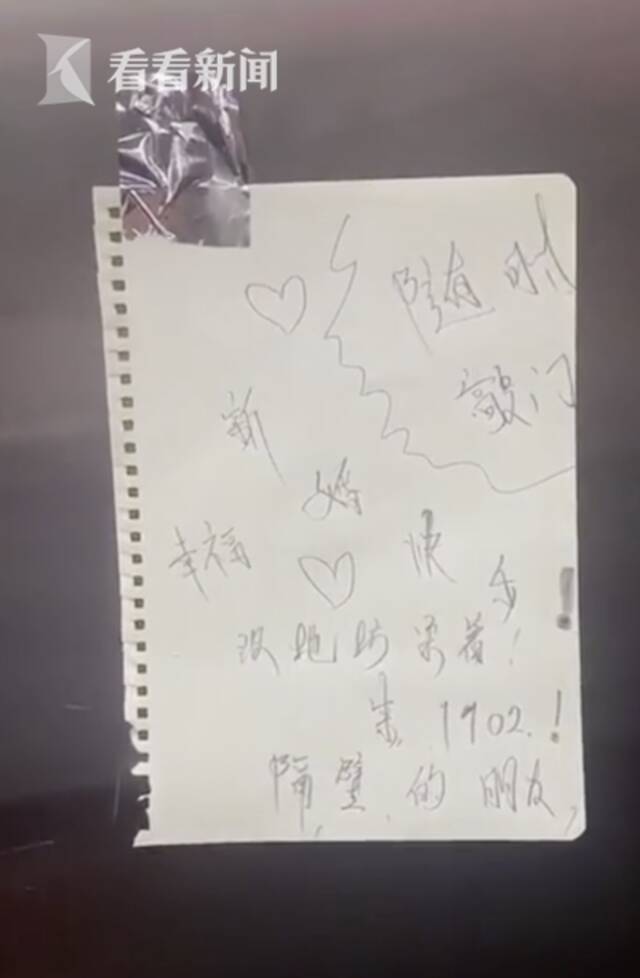 看看新闻
随时
敲门
新
婚
快
乐！
幸福
没地防呆着！
来1902！
隔壁的朋友